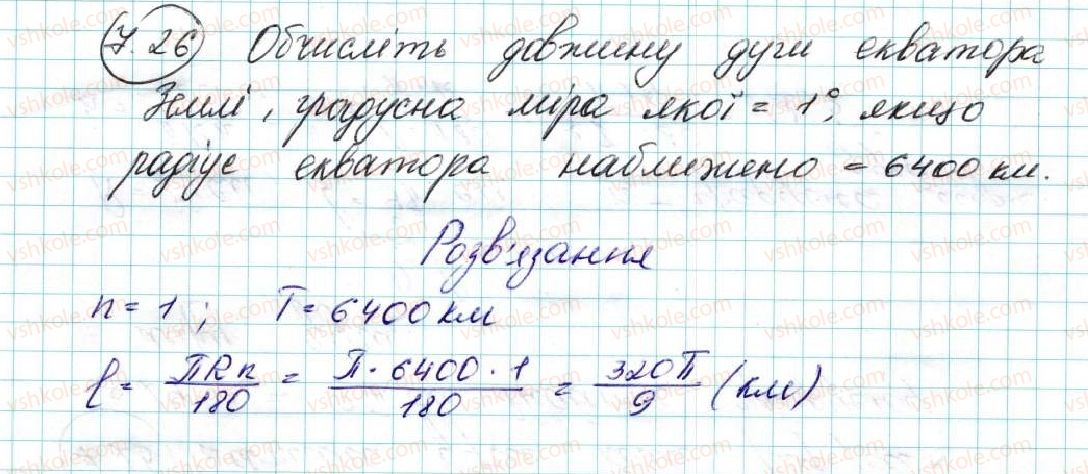 7.26 Обчисліть довжину дуги екватора
Землі, градусна міра якої = 1°, якщо
радіус екватора наближено = 6400 км.
Розв'язання
n = 1; r = 6400 км
l = πRn/180 = π·6400·1/180 = 320π/9 (км)